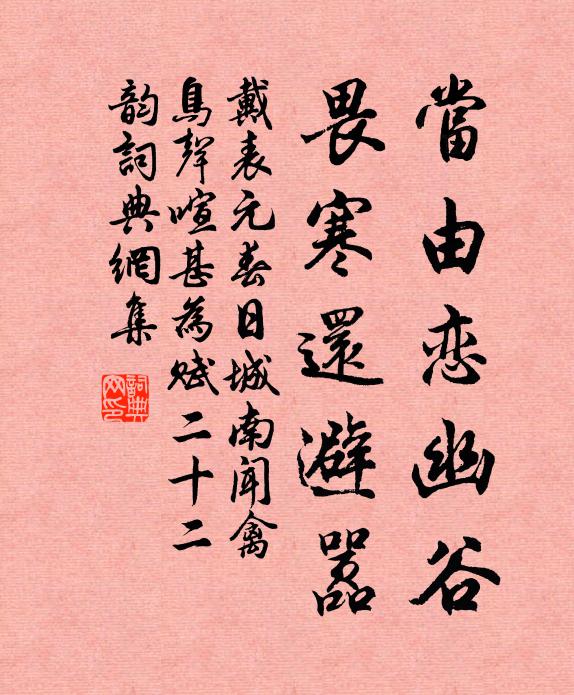 當由恋幽谷
畏寒還避嚣
戴表元春日城南聞禽
鳥聲喧甚為赋二十二
韵詞典網集
詞典
网印